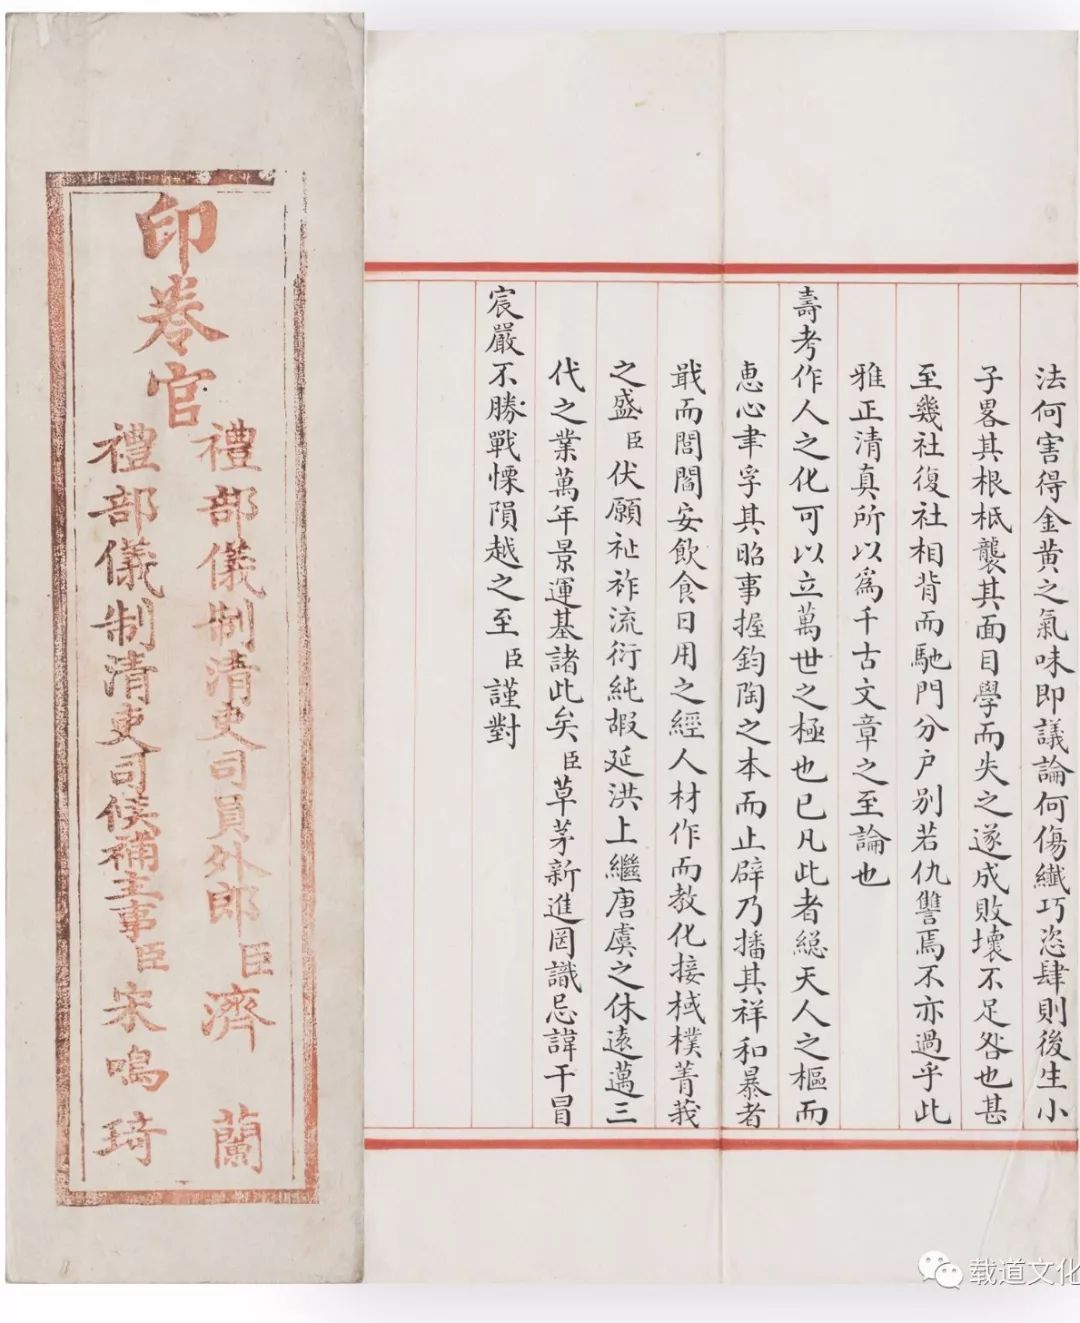 法何害得金黃之氣味即議論何傷纖巧恣肆則後生小
子畧其根柢襲其面目學而失之遂成敗壞不足咎也甚
至幾社復社相背而馳門分户别若仇讐焉不亦過乎此
雅正清真所以爲千古文章之至論也
壽考作人之化可以立萬世之極也已凡此者総天人之樞而
惠心聿孚其昭事握鈞陶之本而止辟乃播其祥和暴者
戢而閭閻安飲食日用之經人材作而教化接棫樸菁莪
之盛臣伏願祉祚流衍純嘏延洪上繼唐虞之休遠邁三
代之業萬年景運基諸此矣臣草茅新進罔識忌諱干冒
宸嚴不勝戰慄隕越之至臣謹對
印卷官
禮部儀制清吏司員外郎臣濟蘭
禮部儀制清吏司候補主事臣宋鳴琦
载道文化